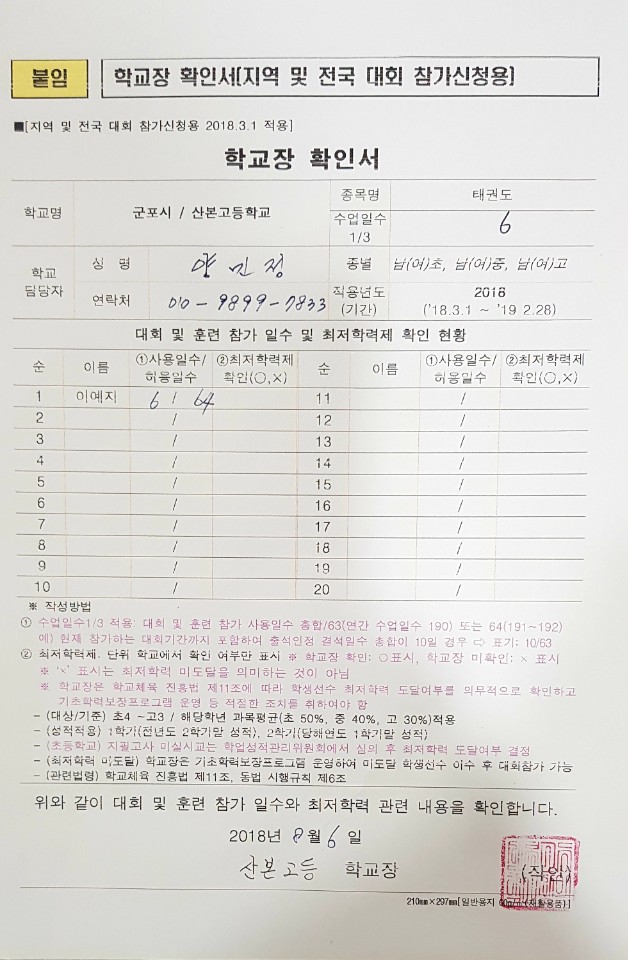 붙임
학교장 확인서[지역 및 전국 대회 참가신청용]
■[지역 및 전국 대회 참가신청용 2018.3.1 적용]
학교장 확인서
학교명 군포시 / 산본고등학교 종목명 태권도
수업일수 1/3 6
학교 담당자 성 명 종별 남(여)초, 남(여)중, 남(여)고
연락처 010-9899-7833 적용년도 (기간) 2018 ('18.3.1 ~ '19 2.28)
대회 및 훈련 참가 일수 및 최저학력제 확인 현황
순 이름 ①사용일수/허용일수 ②최저학력제 확인(○,×) 순 이름 ①사용일수/허용일수 ②최저학력제 확인(○,×)
1 이예지 6 / 64 11 /
2 / 12 /
3 / 13 /
4 / 14 /
5 / 15 /
6 / 16 /
7 / 17 /
8 / 18 /
9 / 19 /
10 / 20 /
※ 작성방법
① 수업일수1/3 적용: 대회 및 훈련 참가 사용일수 총합/63(연간 수업일수 190) 또는 64(191~192)
예) 현재 참가하는 대회기간까지 포함하여 출석인정 결석일수 총합이 10일 경우 ⇨ 표기: 10/63
② 최저학력제. 단위 학교에서 확인 여부만 표시 ※ 학교장 확인: ○표시, 학교장 미확인: × 표시
※ '×' 표시는 최저학력 미도달을 의미하는 것이 아님
※ 학교장은 학교체육 진흥법 제11조에 따라 학생선수 최저학력 도달여부를 의무적으로 확인하고
기초학력보장프로그램 운영 등 적절한 조치를 취하여야 함
- (대상/기준) 초4 ~고3 / 해당학년 과목평균(초 50%, 중 40%, 고 30%)적용
- (성적적용) 1학기(전년도 2학기말 성적), 2학기(당해연도 1학기말 성적)
- (초등학교) 지필고사 미실시교는 학업성적관리위원회에서 심의 후 최저학력 도달여부 결정
- (최저학력 미도달) 학교장은 기초학력보장프로그램 운영하여 미도달 학생선수 이수 후 대회참가 가능
- (관련법령) 학교체육 진흥법 제11조, 동법 시행규칙 제6조
위와 같이 대회 및 훈련 참가 일수와 최저학력 관련 내용을 확인합니다.
2018년 8월 6일
산본고등 학교장 (직인)
210㎜×297㎜[일반용지 60g/㎡(재활용품)]